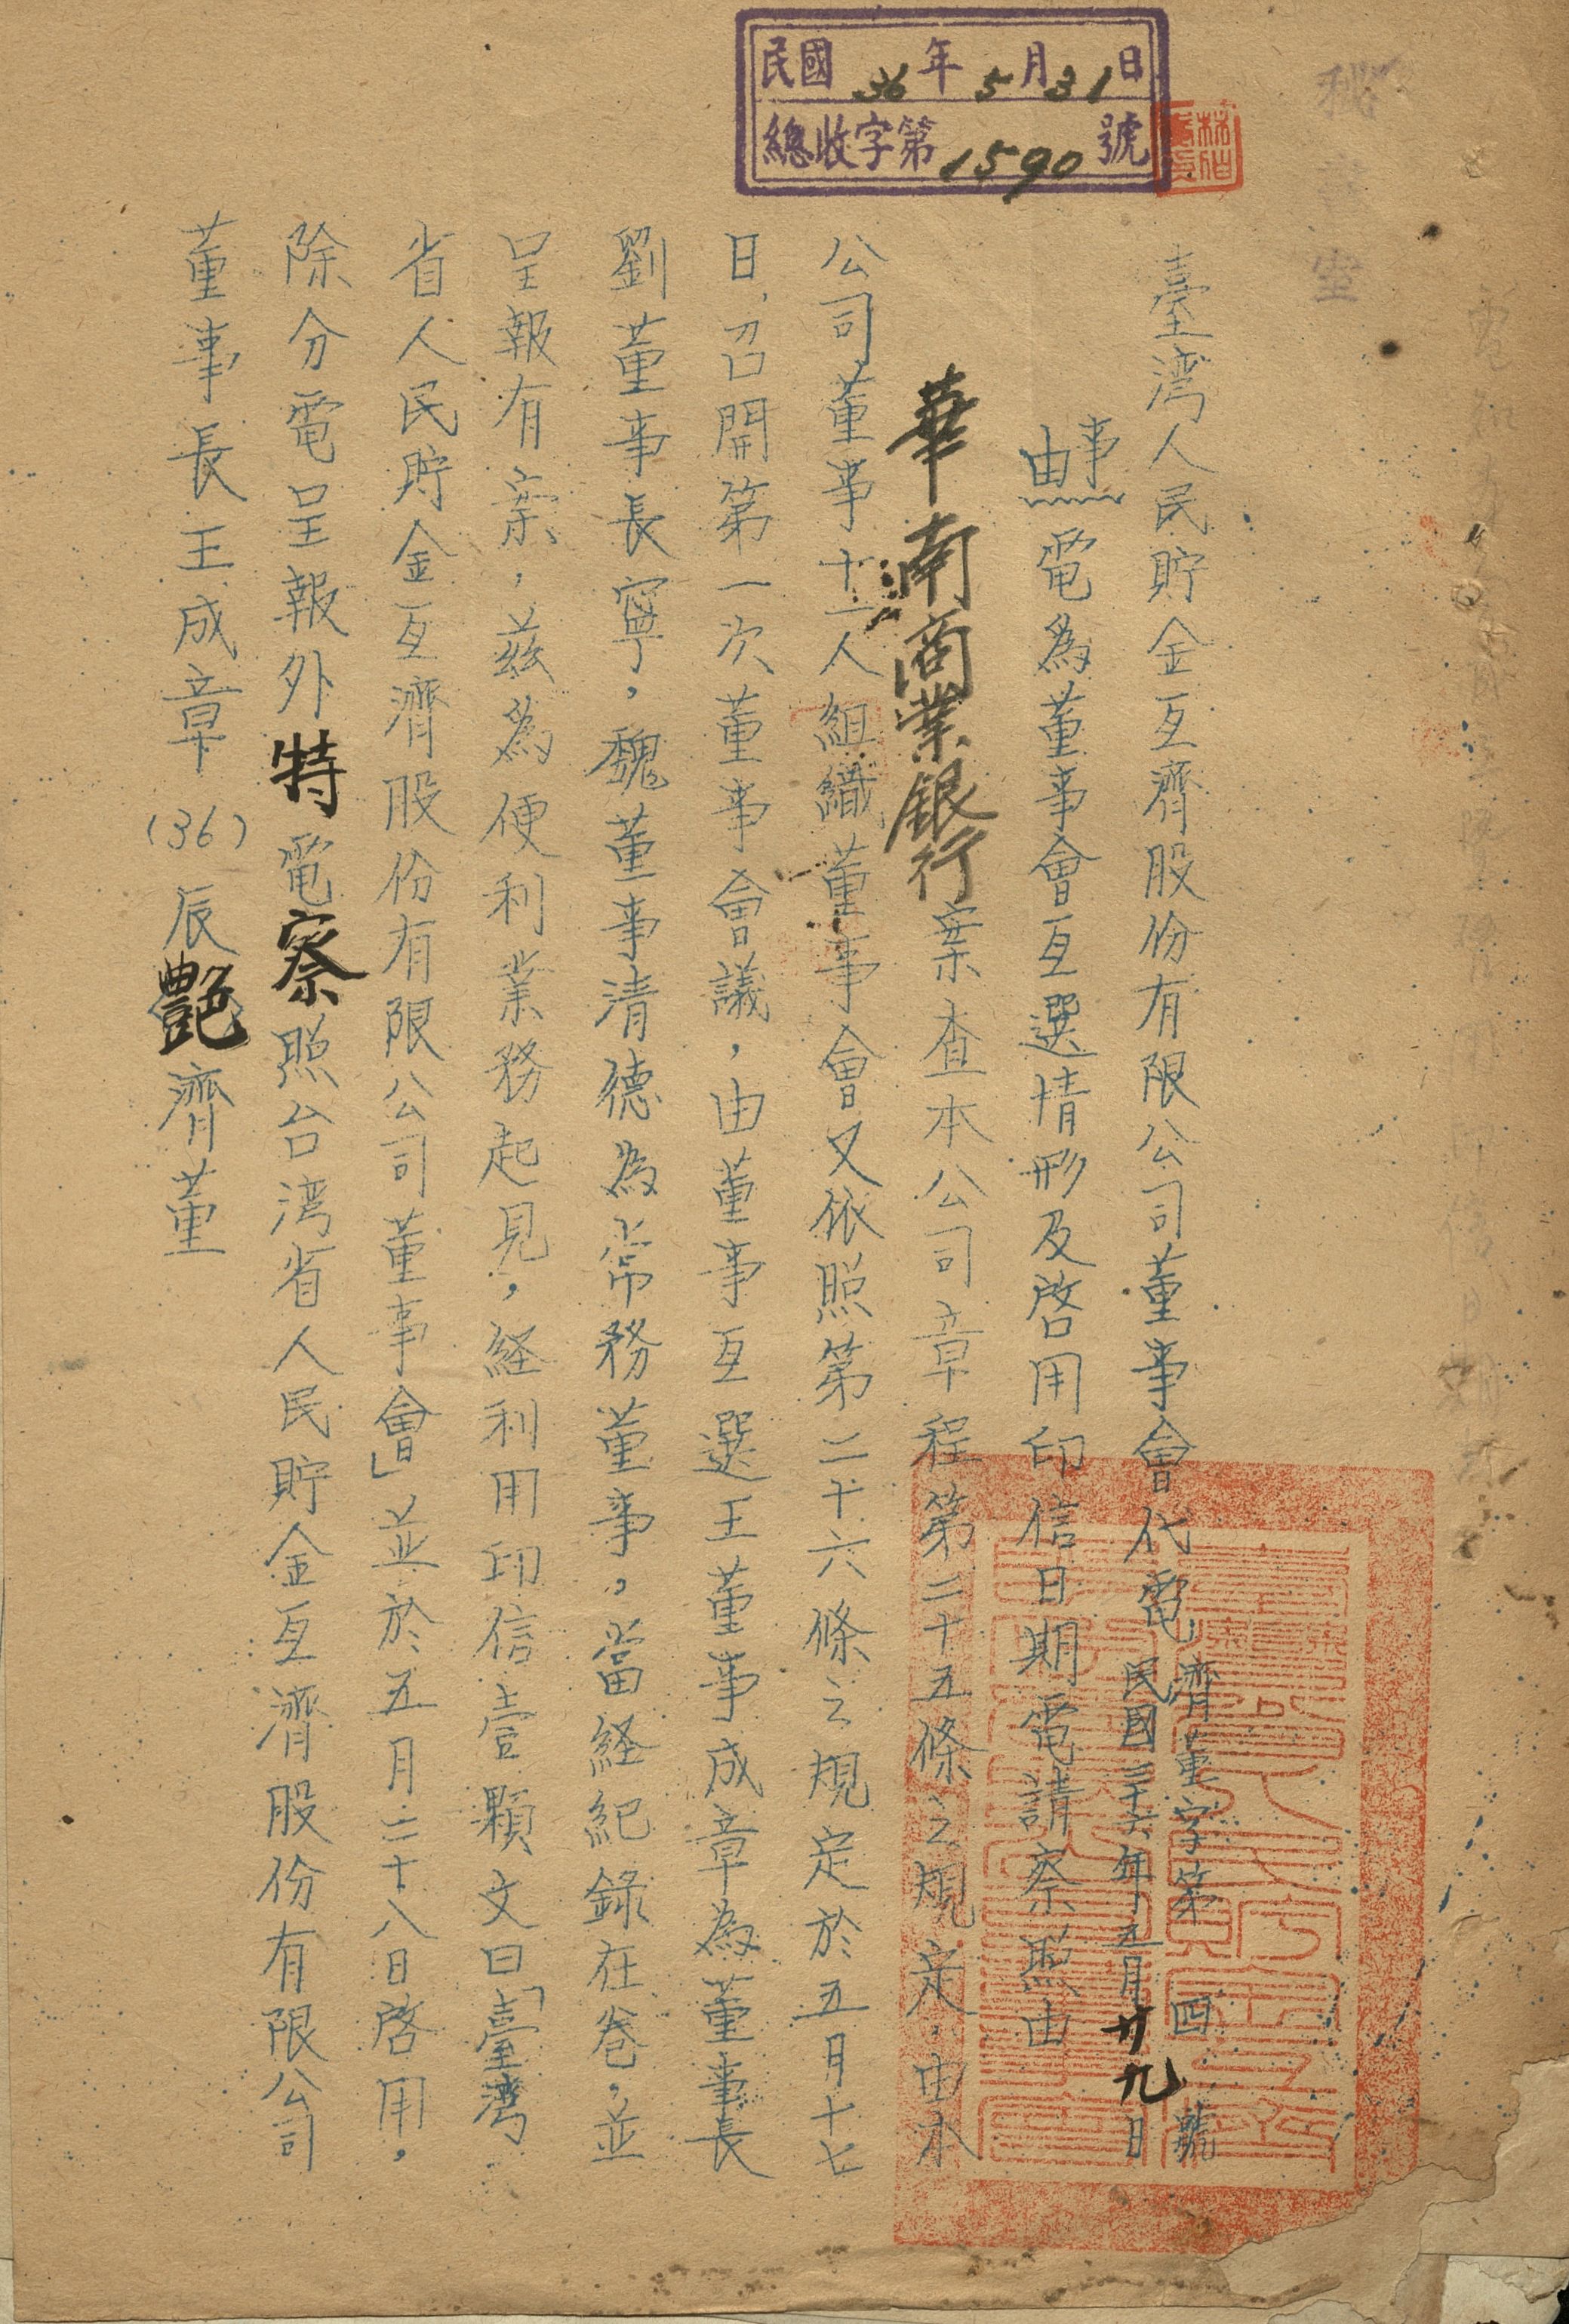 民國36年5月31日
總收字第1590號
秘書室
臺湾人民貯金互濟股份有限公司董事會代電
濟董字第四號
民國三十六年五月廿九日
事由
電為董事會互選情形及啓用印信日期電請察照由
華南商業銀行案查本公司章程第二十五條之規定,由本
公司董事十一人組織董事會又依照第二十六條之規定於五月十七
日,召開第一次董事會議,由董事互選王董事成章為董事長
劉董事長寧,魏董事清德為常務董事,當経紀錄在卷,並
呈報有案,茲為便利業務起見,経利用印信壹顆文曰「臺湾
省人民貯金互濟股份有限公司董事會」並於五月二十八日啓用,
除分電呈報外特電察照台湾省人民貯金互濟股份有限公司
董事長王成章(36)辰艷濟董